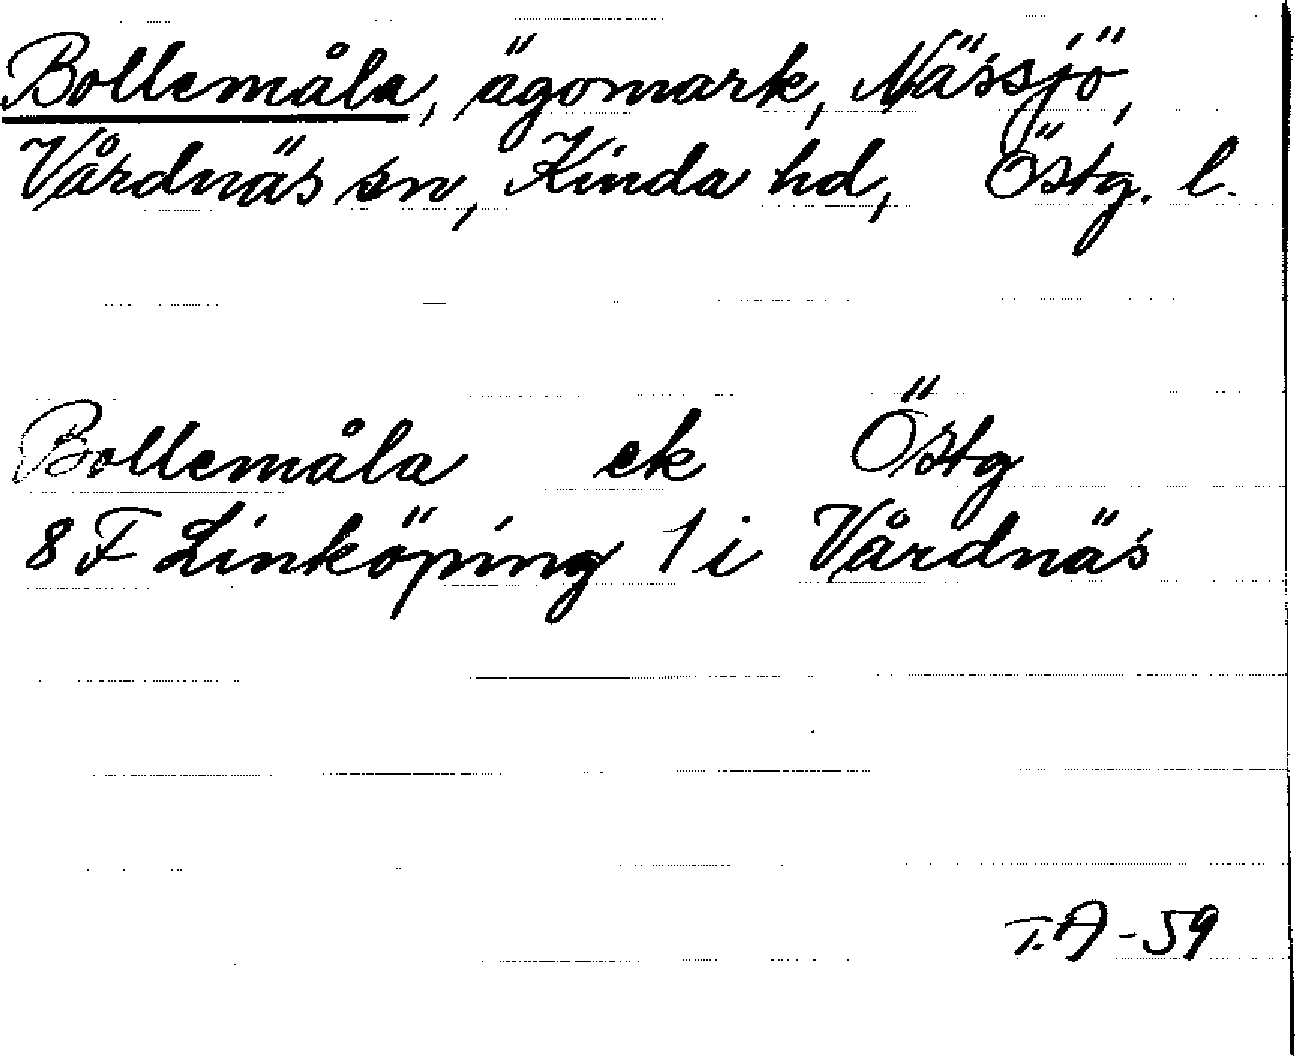 Bollemåla, ägomark, Nässjö,
Vårdnäs sn, Kinda hd, Östg. l.
Bollemåla ek Östg
8 F Linköping 1 i Vårdnäs
T.A-59